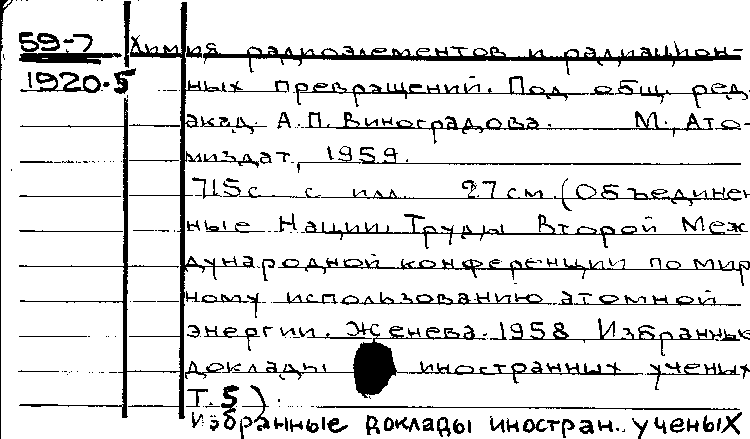 59-7 Химия радиоэлементов и радиацион-
1920.5 ных превращений. Под общ. ред.
акад. А.П. Виноградова. М., Ато-
миздат, 1959.
715с. с илл. 27см. (Объединен
ные Нации. Труды Второй Меж
дународной конференции по мир
ному использованию атомной
энергии. Женева. 1958. Избранные
доклады иностранных ученых
Т. 5).
Избранные доклады иностран. ученых